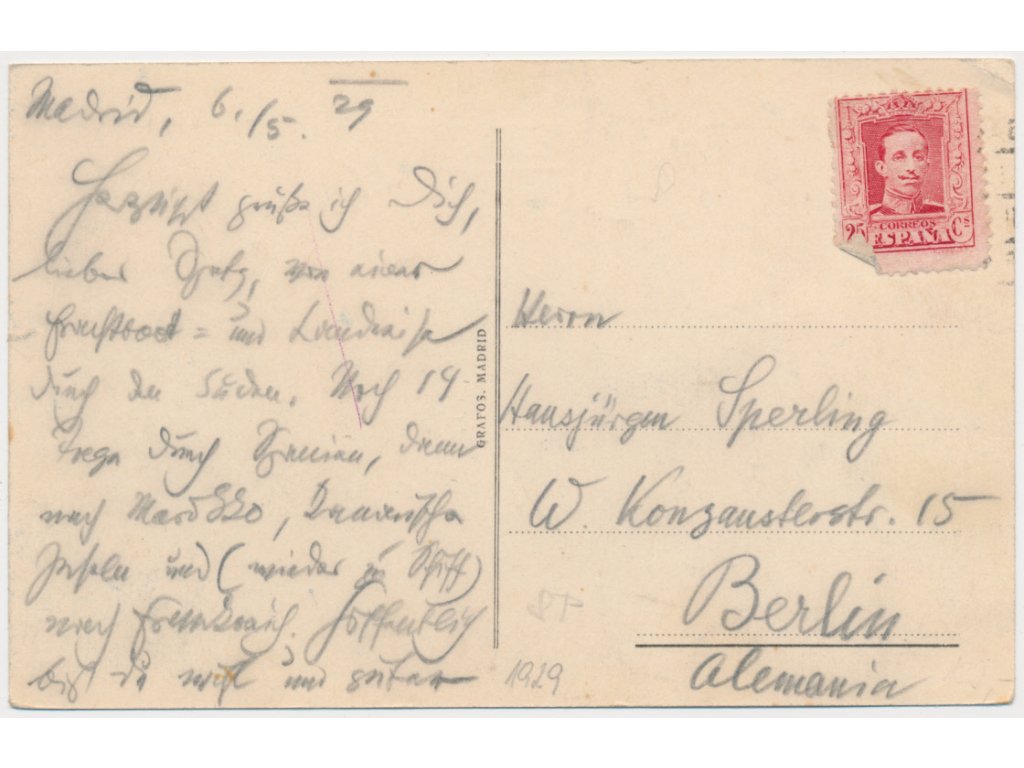 Madrid, 6./5. 29
Herzlichst grüße ich Dich,
lieber Spatz, von einer
Frachtboot= und Landreise
durch den Süden. Noch 14
Tage durch Spanien, dann
nach Marokko, Kanarische
Inseln und (wieder p. Schiff)
nach Frankreich. Hoffentlich
bist du wohl und guter
1929
GRAFOS. MADRID
25 Cs
CORREOS
ESPAÑA
Herrn
Hansjürgen Sperling
W. Konzansterstr. 15
Berlin
Alemania